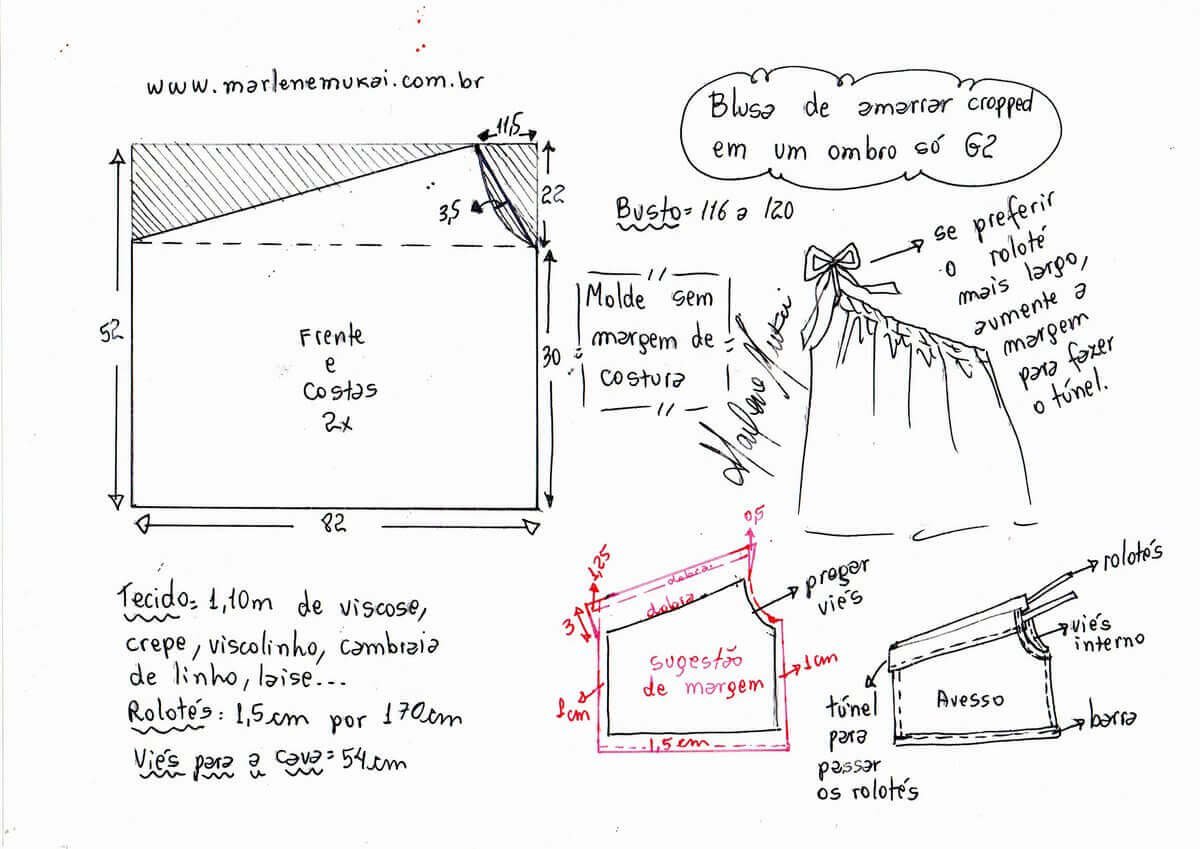 www.marlenemukai.com.br
11,5
22
3,5
52
30
Frente
e
Costas
2x
82
Blusa de amarrar cropped
em um ombro só G2
Busto= 116 a 120
Molde sem
margem de
costura
Marlene Mukai
se preferir
o roloté
mais largo,
aumente a
margem
para fazer
o túnel.
Tecido= 1,10m de viscose,
crepe, viscolinho, cambraia
de linho, laise...
Rolotés: 1,5cm por 170cm
Viés para a cava= 54cm
0,5
1,25
3
dobrar
dobra
pregar
viés
sugestão
de margem
1cm
1cm
1,5cm
rolotés
viés
interno
Avesso
barra
túnel
para
passar
os rolotés